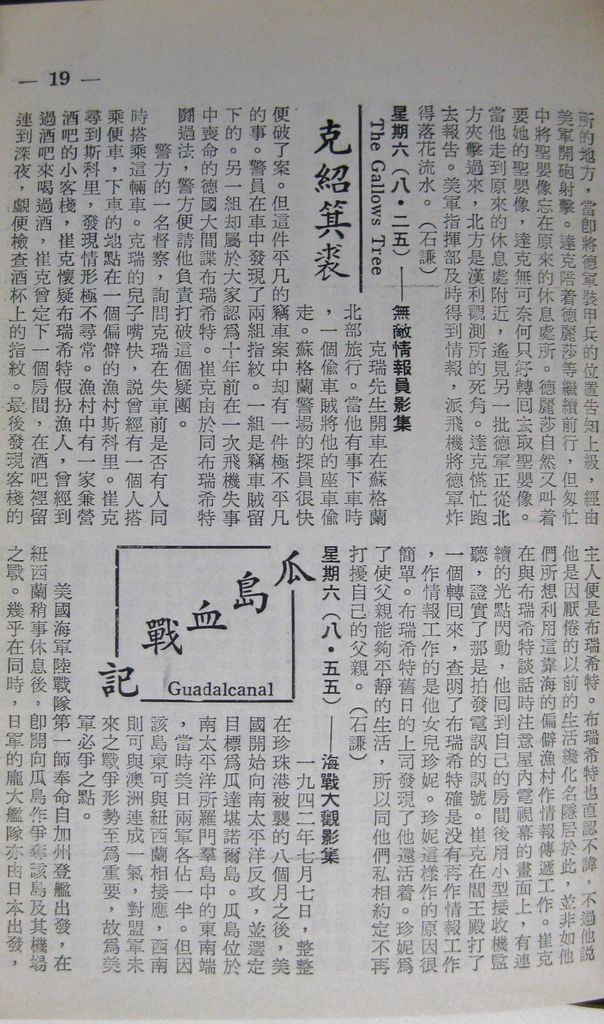 — 19 —
所的地方，當即將德軍裝甲兵的位置告知上級，經由
美軍開砲射擊。達克陪着德麗莎等繼續前行，但匆忙
中將聖嬰像忘在原來的休息處所。德麗莎自然又叫着
要她的聖嬰像，達克無可奈何只好轉回去取聖嬰像。
當他走到原來的休息處附近，遙見另一批德軍正從北
方夾擊過來，北方是漢利觀測所的死角。達克慌忙跑
去報告。美軍指揮部及時得到情報，派飛機將德軍炸
得落花流水。（石謙）
星期六（八・二五）——無敵情報員影集
The Gallows Tree
克紹箕裘
克瑞先生開車在蘇格蘭
北部旅行。當他有事下車時
，一個偷車賊將他的座車偷
走。蘇格蘭警場的探員很快
便破了案。但這件平凡的竊車案中却有一件極不平凡
的事。警員在車中發現了兩組指紋。一組是竊車賊留
下的。另一組却屬於大家認爲十年前在一次飛機失事
中喪命的德國大間諜布瑞希特。崔克由於同布瑞希特
鬪過法，警方便請他負責打破這個疑團。
警方的一名督察，詢問克瑞在失車前是否有人同
時搭乘這輛車。克瑞的兒子嘴快，説曾經有一個人搭
乘便車，下車的地點在一個偏僻的漁村斯科里。崔克
尋到斯科里，發現情形極不尋常。漁村中有一家兼營
酒吧的小客棧，崔克懷疑布瑞希特假扮漁人，曾經到
過酒吧來喝過酒，崔克曾定下一個房間，在酒吧裡留
連到深夜，覷便檢查酒杯上的指紋。最後發現客棧的
主人便是布瑞希特。布瑞希特也直認不諱，不過他説
他是因厭倦的以前的生活纔化名隱居於此，並非如他
們所想利用這靠海的偏僻漁村作情報傳遞工作。崔克
在與布瑞希特談話時注意屋內電視幕的畫面上，有連
續的光點閃動，他回到自己的房間後用小型接收機監
聽，證實了那是拍發電訊的訊號。崔克在閻王殿打了
一個轉回來，查明了布瑞希特確是没有再作情報工作
，作情報工作的是他女兒珍妮。珍妮這樣作的原因很
簡單。布瑞希特舊日的上司發現了他還活着。珍妮爲
了使父親能夠平靜的生活，所以同他們私相約定不再
打擾自己的父親。（石謙）
星期六（八・五五）——海戰大觀影集
瓜島血戰記
Guadalcanal
一九四二年七月七日，整整
在珍珠港被襲的八個月之後，美
國開始向南太平洋反攻，並選定
目標爲瓜達堪諾爾島。瓜島位於
南太平洋所羅門羣島中的東南端
，當時美日兩軍各佔一半。但因
該島東可與紐西蘭相接應，西南
則可與澳洲連成一氣，對盟軍未
來之戰爭形勢至爲重要，故爲美
軍必爭之點。
美國海軍陸戰隊第一師奉命自加州登艦出發，在
紐西蘭稍事休息後，卽開向瓜島作爭奪該島及其機場
之戰。幾乎在同時，日軍的龐大艦隊亦由日本出發，